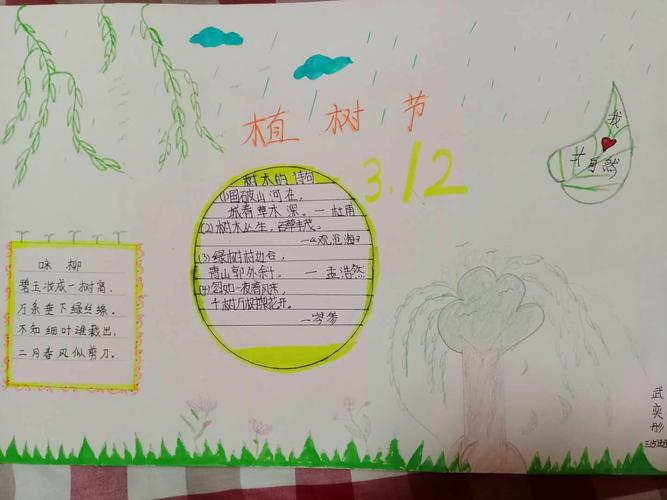 植树节
3.12
我
大自然
树木的诗句
(1)国破山河在,
城春草木深。—杜甫
(2)树木丛生,百草丰茂。
—《观沧海》
(3)绿树村边合,
青山郭外斜。—孟浩然
(4)忽如一夜春风来,
千树万树梨花开。
—岑参
咏柳
碧玉妆成一树高,
万条垂下绿丝绦。
不知细叶谁裁出,
二月春风似剪刀。
武奕彤